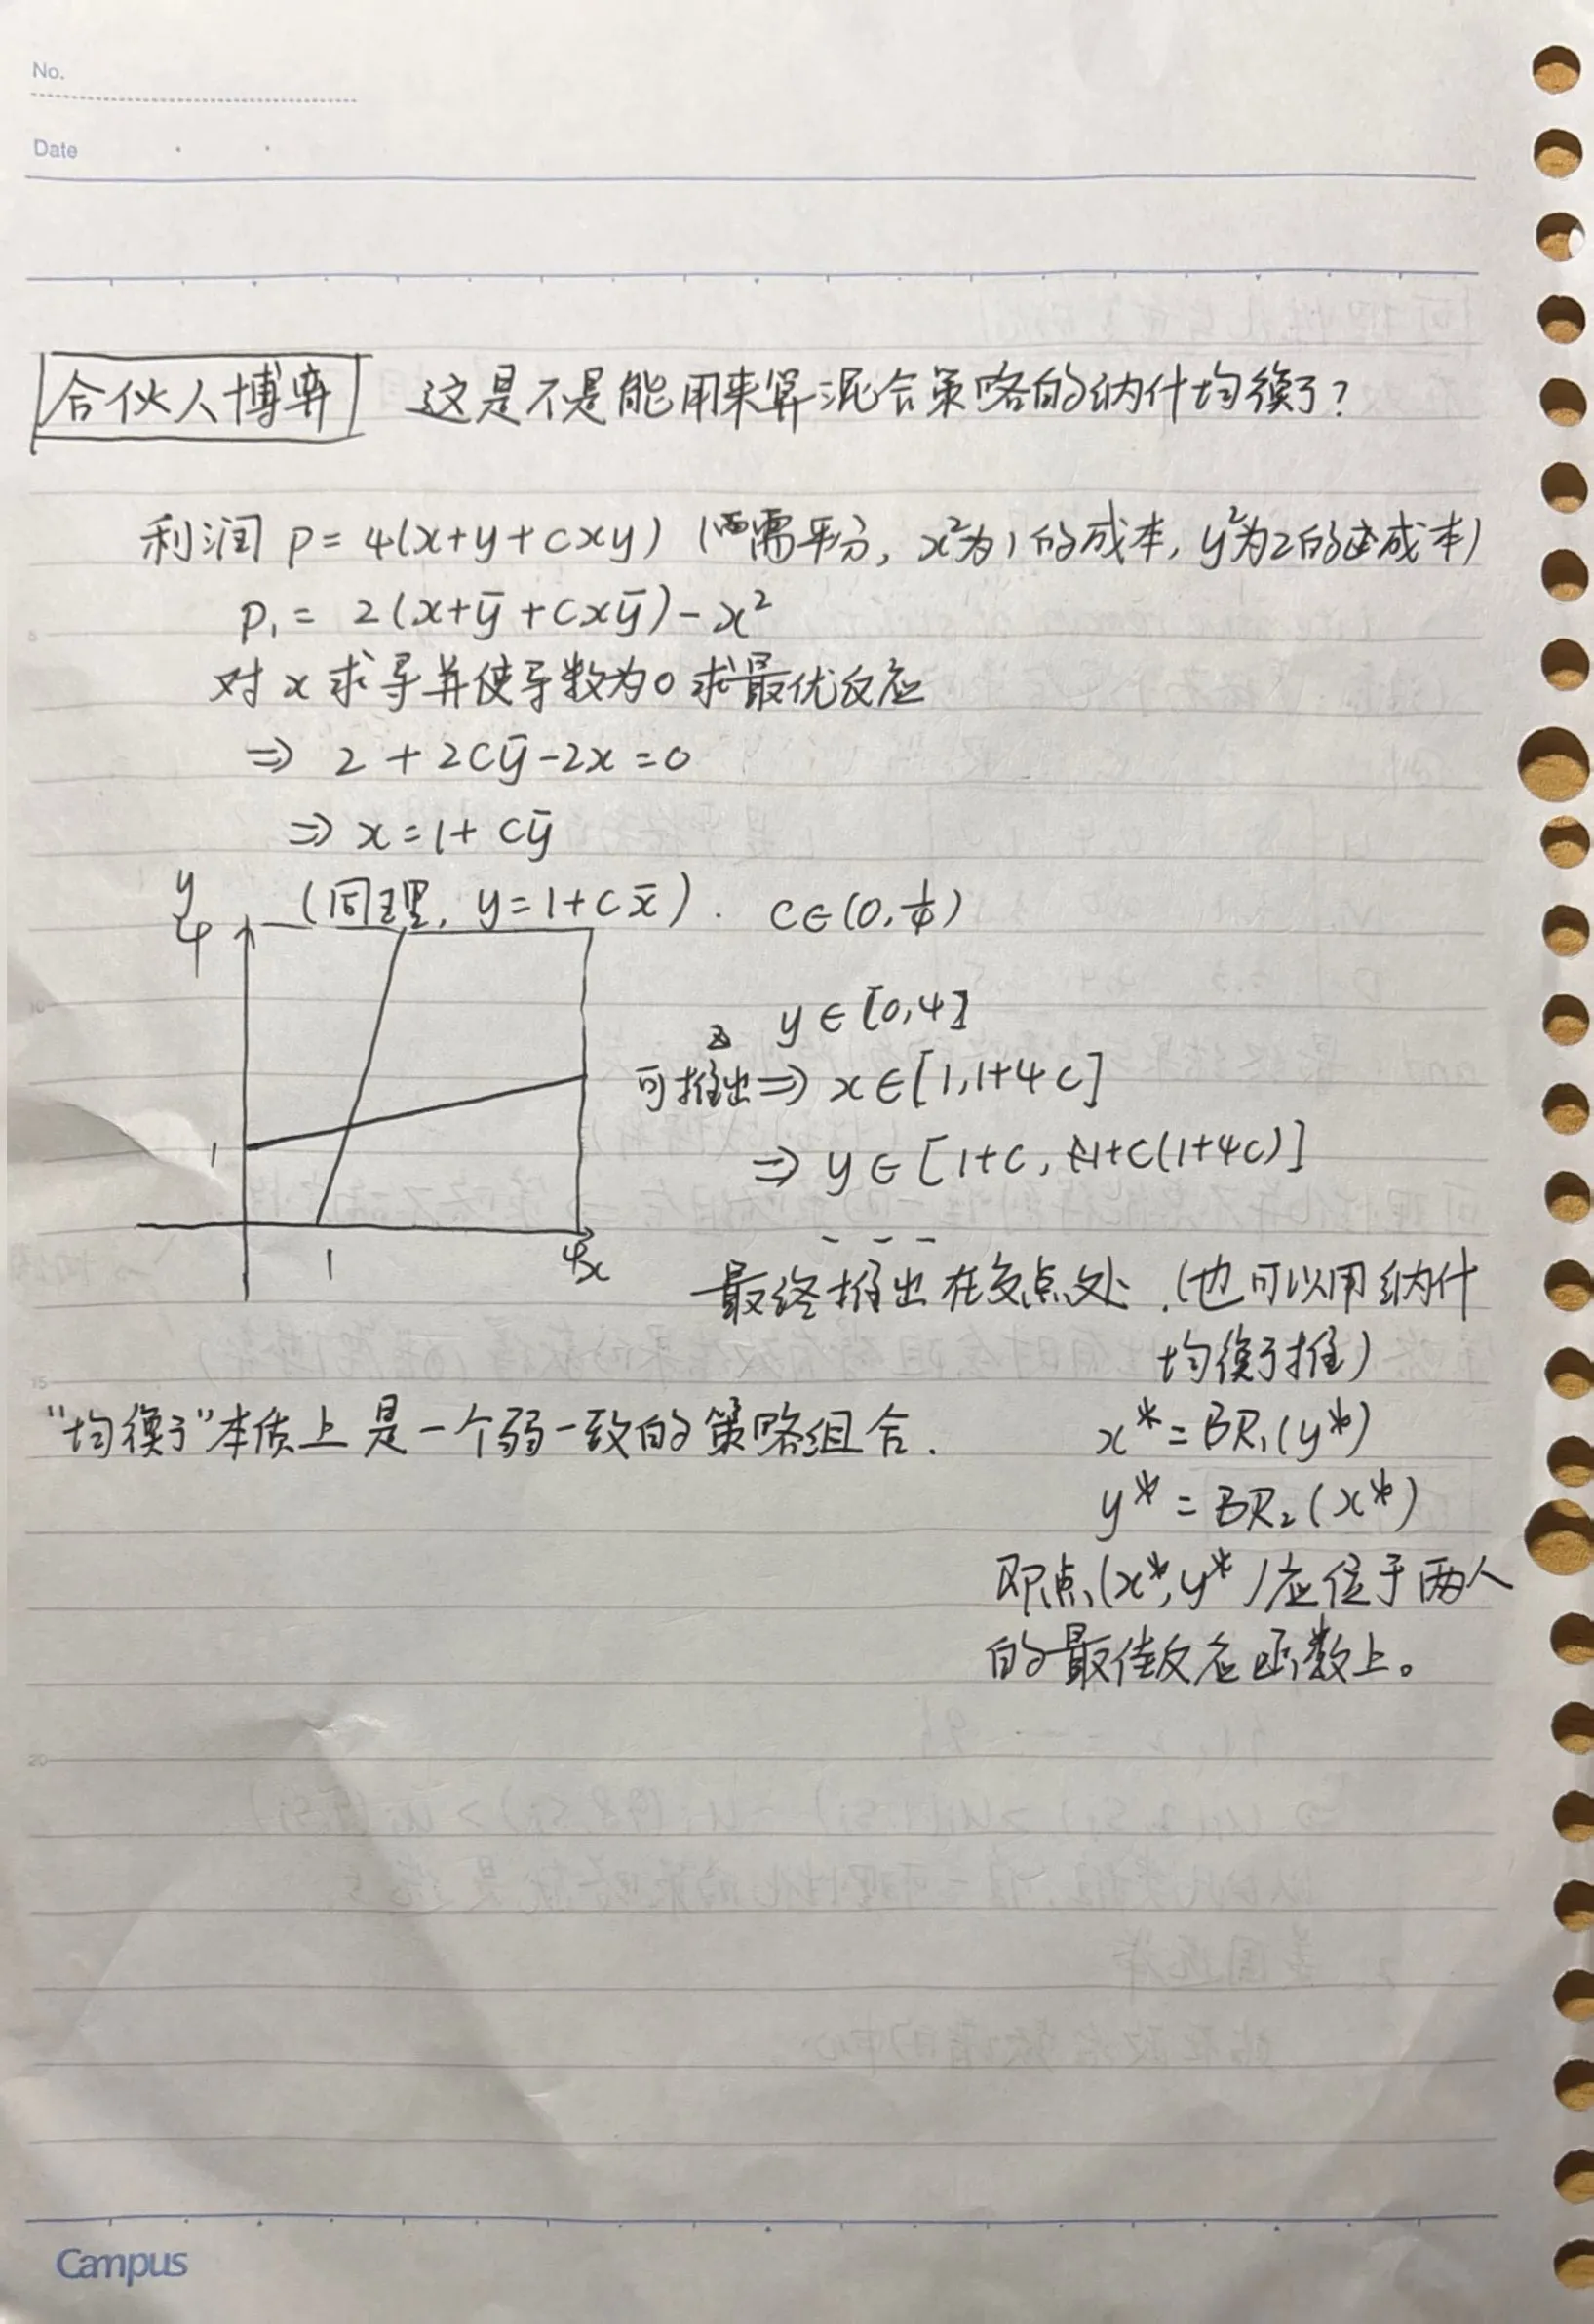 No.
Date
合伙人博弈 这是不是能用来算混合策略的纳什均衡?
利润 P = 4(x+y+cxy) (需平分, x²为1的成本, y²为2的成本)
P₁ = 2(x+ȳ+cxȳ)-x²
对x求导并使导数为0求最优反应
⇒ 2+2cȳ-2x=0
⇒ x=1+cȳ
(同理, y=1+cx̄). c∈(0,1/4)
y
4
1
1
4
x
y∈[0,4]
可推出⇒ x∈[1,1+4c]
⇒ y∈[1+c, 1+c(1+4c)]
---
最终推出在交点处.(也可以用纳什
均衡推)
"均衡"本质上是一个弱一致的策略组合.
x*=BR₁(y*)
y*=BR₂(x*)
即点(x*,y*)应位于两人
的最佳反应函数上。
5
10
15
20
Campus